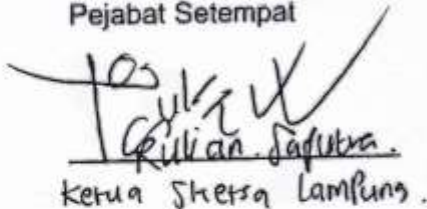 Pejabat Setempat
Rulian Saputra.
Ketua Sketsa Lampung.